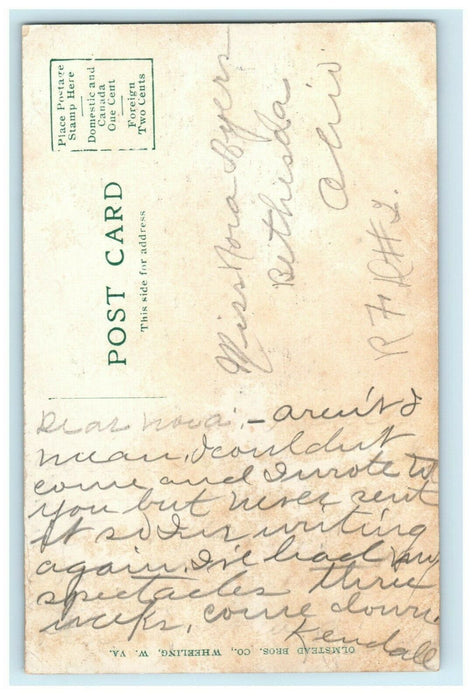 Place Postage
Stamp Here
Domestic and
Canada
One Cent
Foreign
Two Cents
POST CARD
This side for address
Miss Nova Ayers
Bethesda
Ohio
R F D #2.
Dear Nova:- aren't I
mean, I couldn't
come and I wrote to
you but never sent
it so I'm writing
again. I've had my
spectacles three
weeks, come down.
Kendall
OLMSTEAD BROS. CO., WHEELING, W. VA.